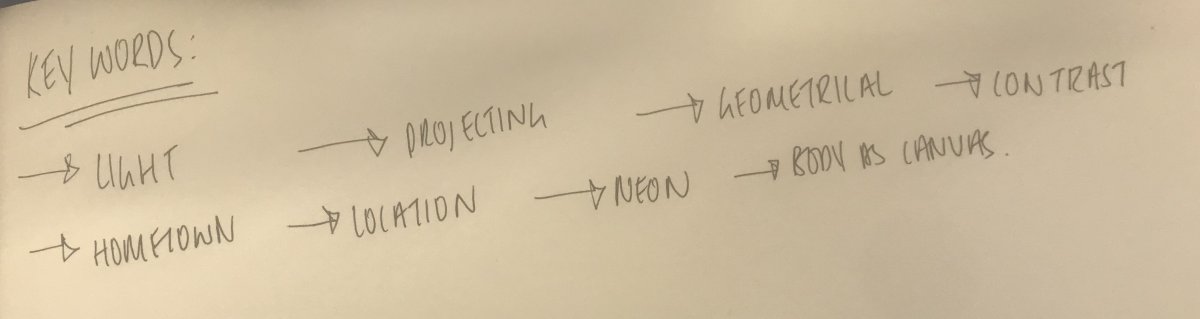 KEY WORDS:
→ LIGHT → PROJECTING → GEOMETRICAL → CONTRAST
→ HOMETOWN → LOCATION → NEON → BODY AS CANVAS.